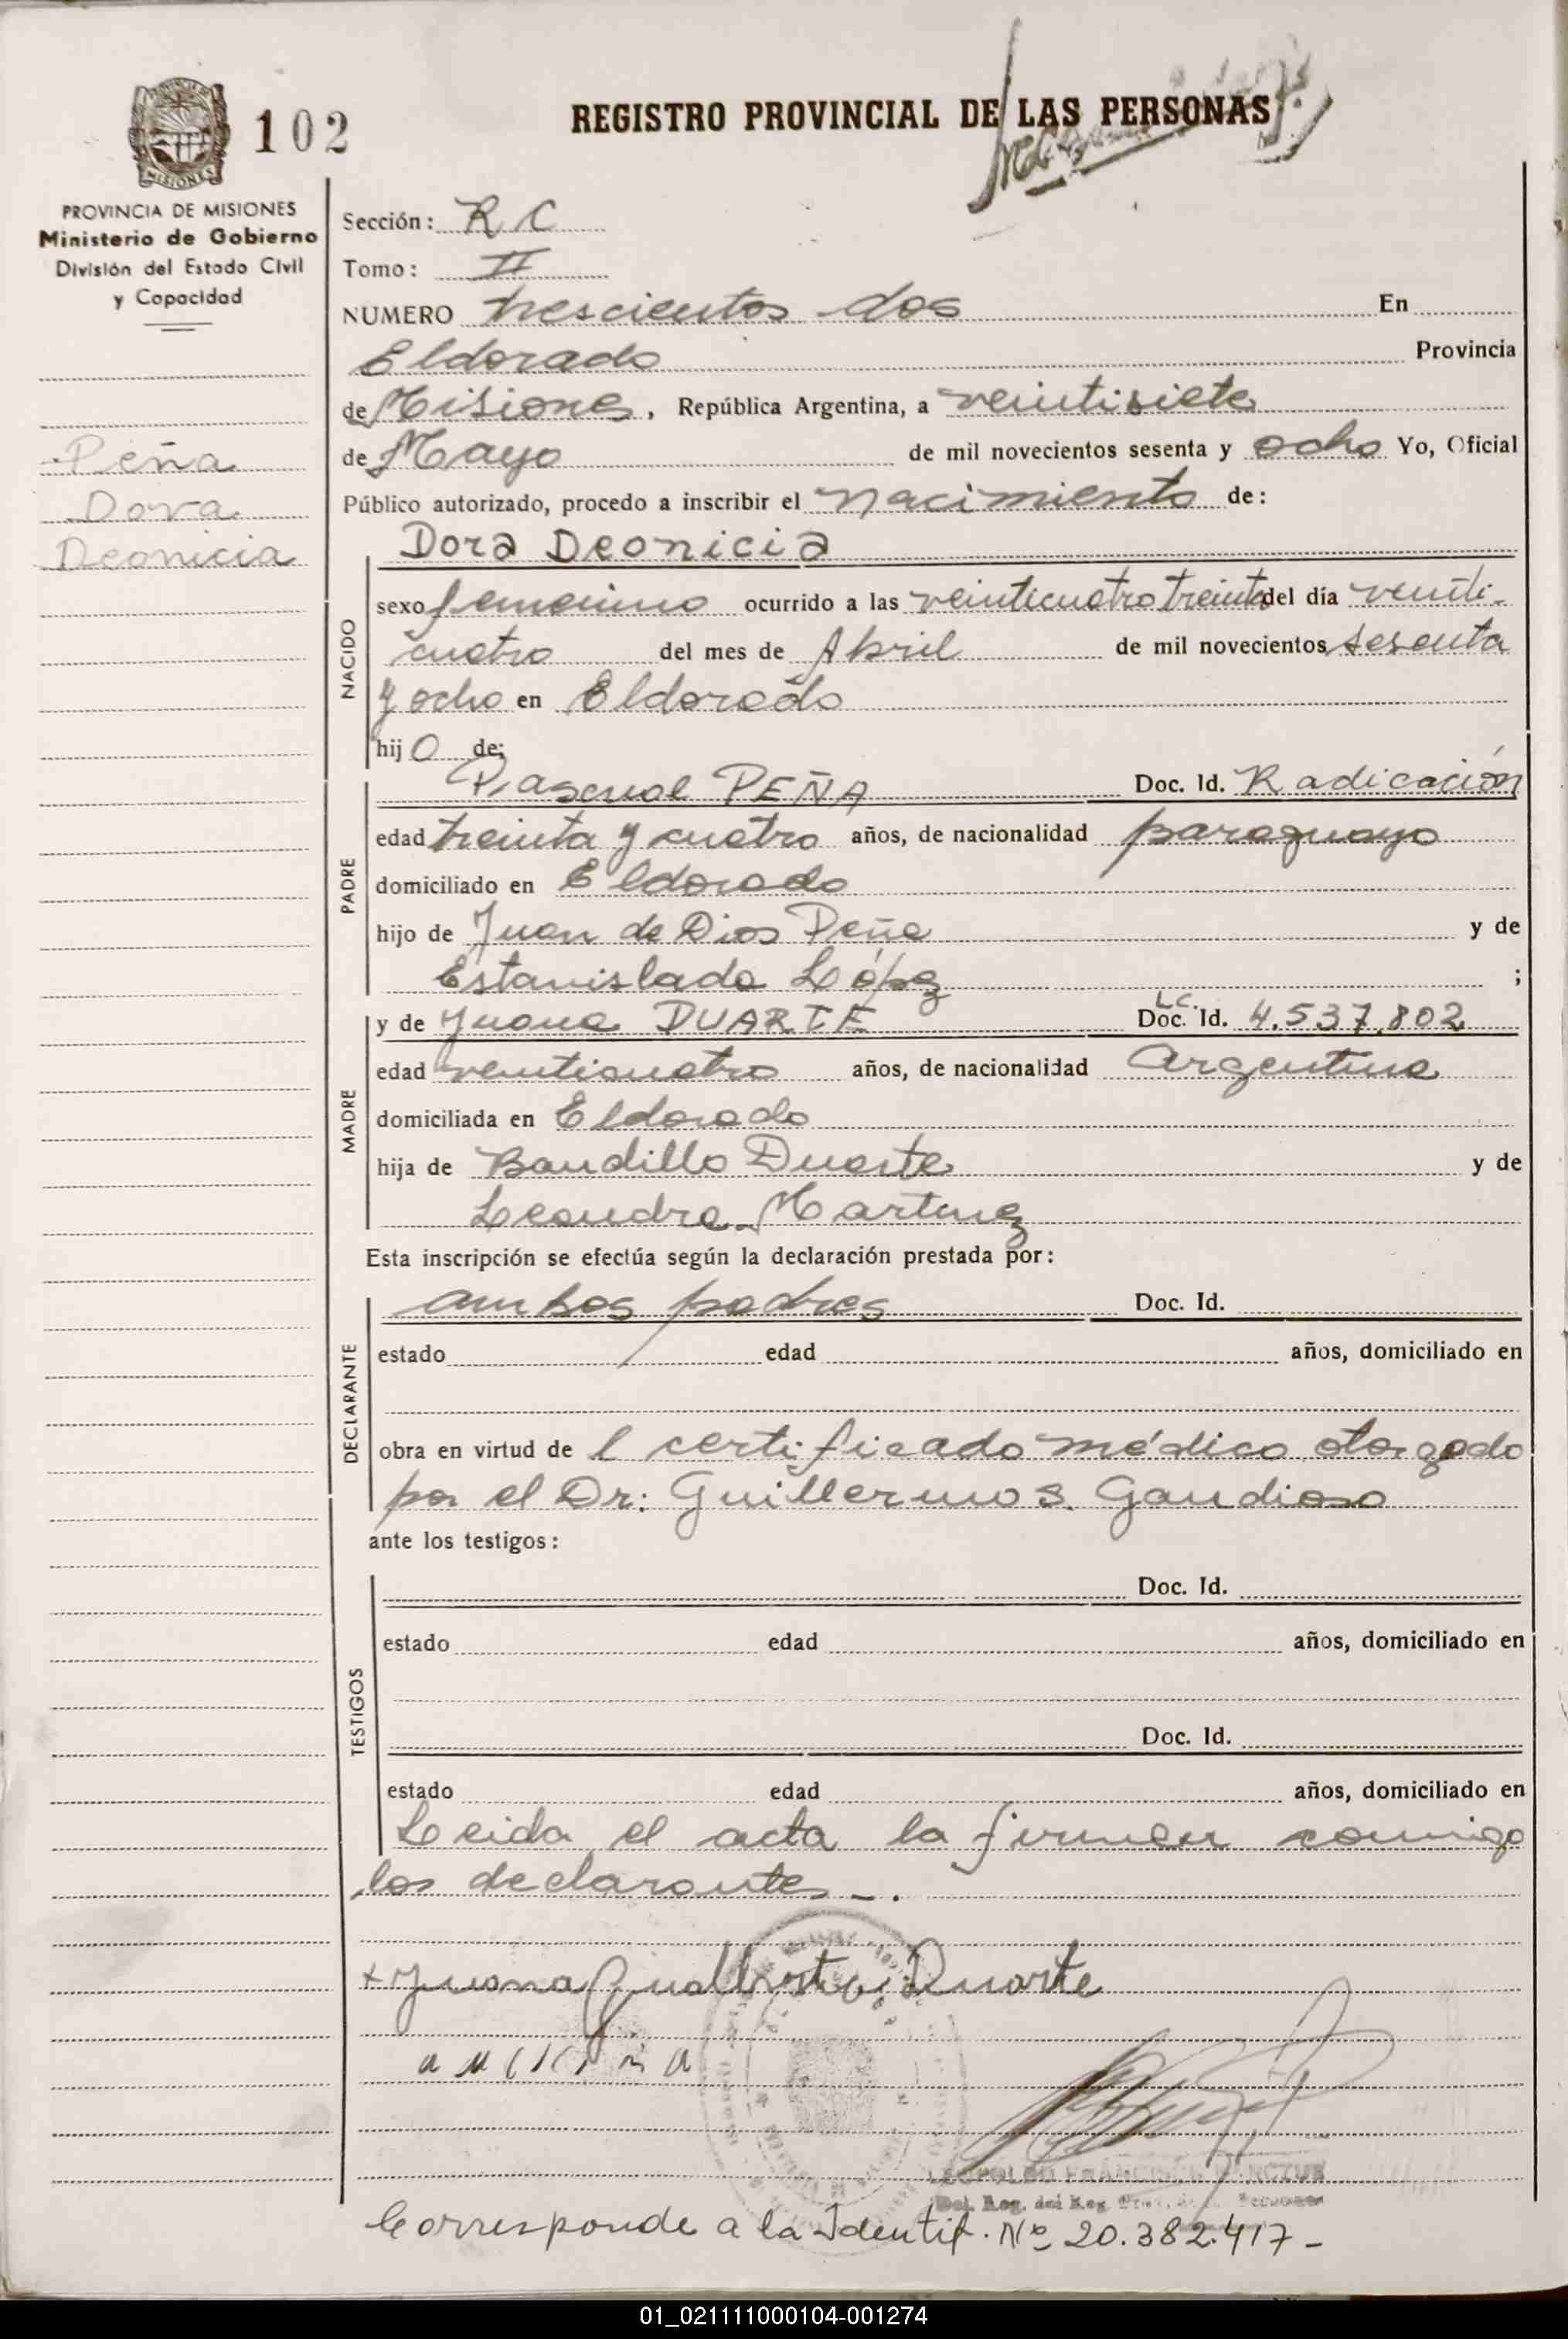 102
REGISTRO PROVINCIAL DE LAS PERSONAS
MISIONES
PROVINCIA DE MISIONES
Ministerio de Gobierno
División del Estado Civil
y Capacidad
Peña
Dora
Deonicia
Sección: R C
Tomo: II
NUMERO trescientos dos En
Eldorado Provincia
de Misiones, República Argentina, a veintisiete
de Mayo de mil novecientos sesenta y ocho Yo, Oficial
Público autorizado, procedo a inscribir el nacimiento de:
Dora Deonicia
NACIDO
sexo femenino ocurrido a las veinticuatro treinta del día veinti-
cuatro del mes de Abril de mil novecientos sesenta
y ocho en Eldorado
hijO de:
PADRE
Pascual PEÑA Doc. Id. Radicación
edad treinta y cuatro años, de nacionalidad paraguayo
domiciliado en Eldorado
hijo de Juan de Dios Peña y de
Estanislada López ;
MADRE
y de Juana DUARTE L.C. Doc. Id. 4.537.802
edad venticuatro años, de nacionalidad Argentina
domiciliada en Eldorado
hija de Baudillo Duarte y de
Leandra Martinez
Esta inscripción se efectúa según la declaración prestada por:
DECLARANTE
ambos padres Doc. Id.
estado edad años, domiciliado en
obra en virtud de l certificado médico otorgado
por el Dr: Guillermo S. Gaudioso
ante los testigos:
TESTIGOS
Doc. Id.
estado edad años, domiciliado en
Doc. Id.
estado edad años, domiciliado en
Leida el acta la firman conmigo
los declarantes -.
x Juana Gualberta Duarte
LEOPOLDO FRANCISCO
Corresponde a la Identif. Nº 20.382.417-
01_021111000104-001274